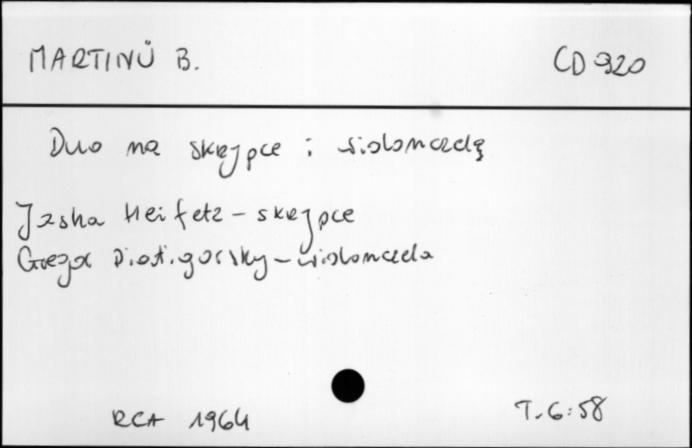 MARTINŮ B. CD 920
Duo na skrzypce i wiolonczelę
Jasha Heifetz - skrzypce
Gregor Piatigorsky - wiolonczela
RCA 1964 T. 6:58